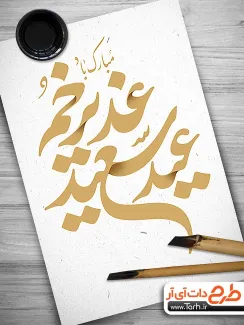 عید سعید
غدیر خم
مبارک باد
طرح دات آی آر
www.Tarh.ir